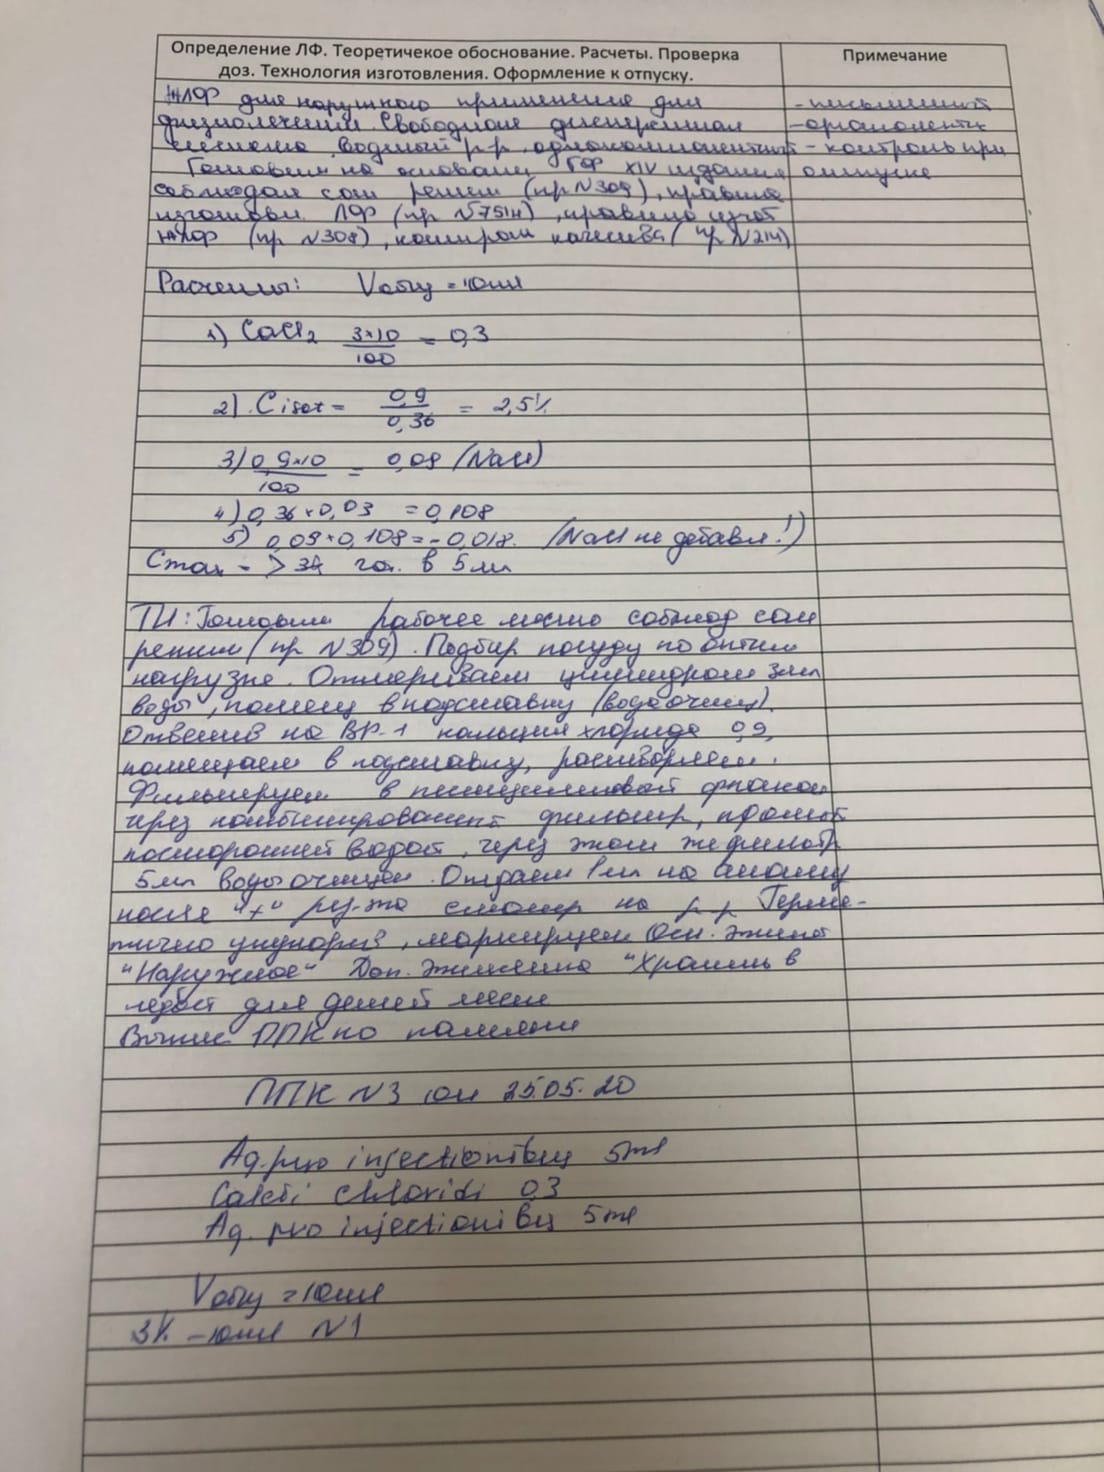 Определение ЛФ. Теоретичекое обоснование. Расчеты. Проверка
доз. Технология изготовления. Оформление к отпуску.
Примечание
ЖЛФ для наружного применения для
физиолечения. Свободная дисперсная
система, водный р-р, однокомпонентный
Готовим на основании ГФ XIV издания
соблюдая сан режим (пр N309), правила
изготовл. ЛФ (пр N751н), правила изгот
ЖЛФ (пр N308), контроль качества (пр N214)
- письменный
- органолептич
- контроль при
отпуске
Расчеты: Vобщ = 10мл
1) CaCl2 3×10/100 = 0,3
2) Cisot = 0,9/0,36 = 2,5%
3) 0,9×10/100 = 0,09 (NaCl)
4) 0,36×0,03 = 0,108
5) 0,09×0,108 = -0,018. (NaCl не добавл.!)
Cmax - > 3% гот. в 5мл
ТИ: Готовим рабочее место соблюд сан
режим (пр N309). Подбир посуду по оптим
нагрузке. Отмериваем цилиндром 5мл
воды, помещ в подставку (вода очищ).
Отвесив на ВР-1 кальция хлорида 0,3,
помещаем в подставку, растворяем.
Фильтруем в пенициллиновый флакон
через комбинированный фильтр, промыт
водой, через этот же фильтр
5мл воды очищен. Отдаем 1мл на анализ
после "+" рез-та смотр на Герме-
тично укупорив, маркируем Осн. этикет
"Наружное" Доп. этикетка "Хранить в
недост для детей месте
Выпис ППК по памяти
ППК N3 от 25.05.20
Aq.pro injectionibus 5ml
Calcii chloridi 0,3
Aq. pro injectionibus 5ml
Vобщ = 10мл
3% - 10мл N1